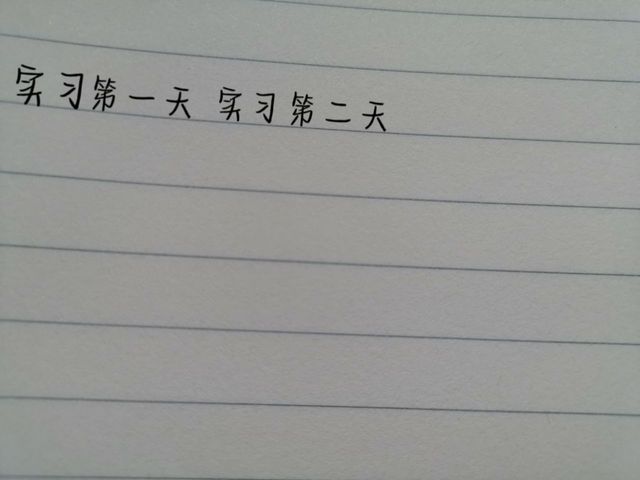 实习第一天 实习第二天